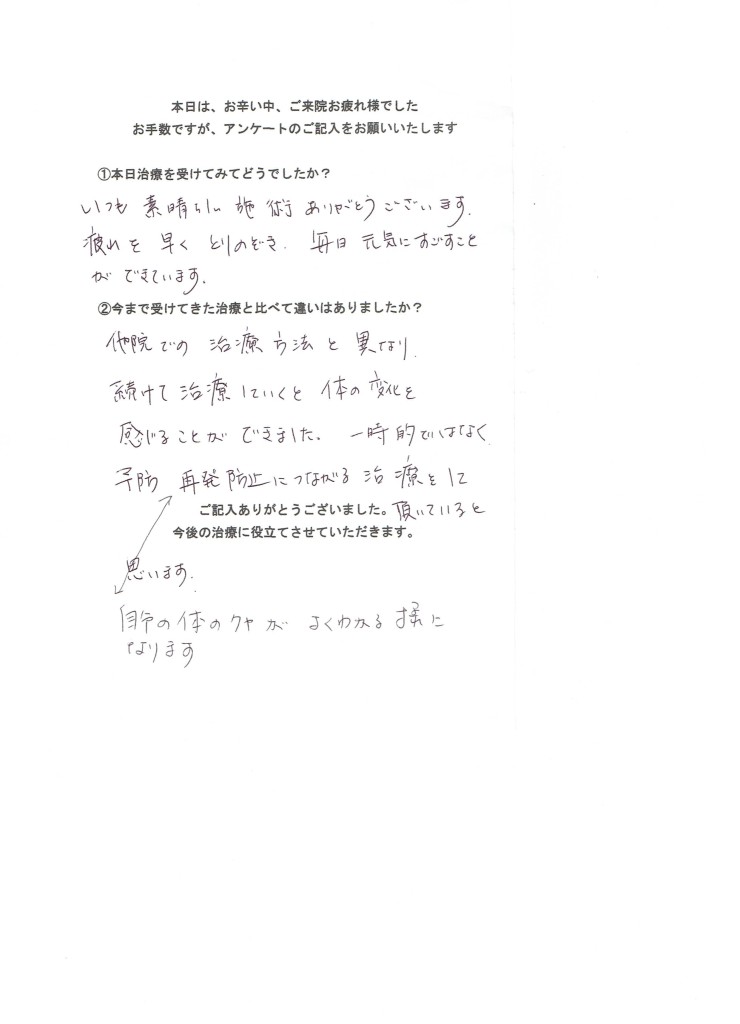 本日は、お辛い中、ご来院お疲れ様でした
お手数ですが、アンケートのご記入をお願いいたします
①本日治療を受けてみてどうでしたか？
いつも 素晴らしい 施術 ありがとうございます.
疲れを 早く とりのぞき. 毎日 元気にすごすこと
が できています.
②今まで受けてきた治療と比べて違いはありましたか？
他院での 治療方法と 異なり.
続けて 治療していくと 体の 変化を
感じることが できました. 一時的ではなく
予防 再発防止につながる 治療をして
ご記入ありがとうございました。
頂いていると
今後の治療に役立てさせていただきます。
思います.
自分の体のクセが よくわかる 様に
なります